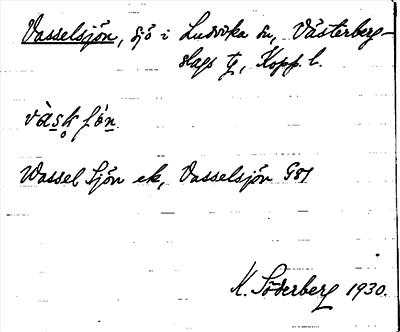 Vasselsjön, sjö i Ludvika sn, Västerberg-
slags tg, Kopp. l.
Wassel Sjön ek, Vasselsjön G81
K. Söderberg 1930.